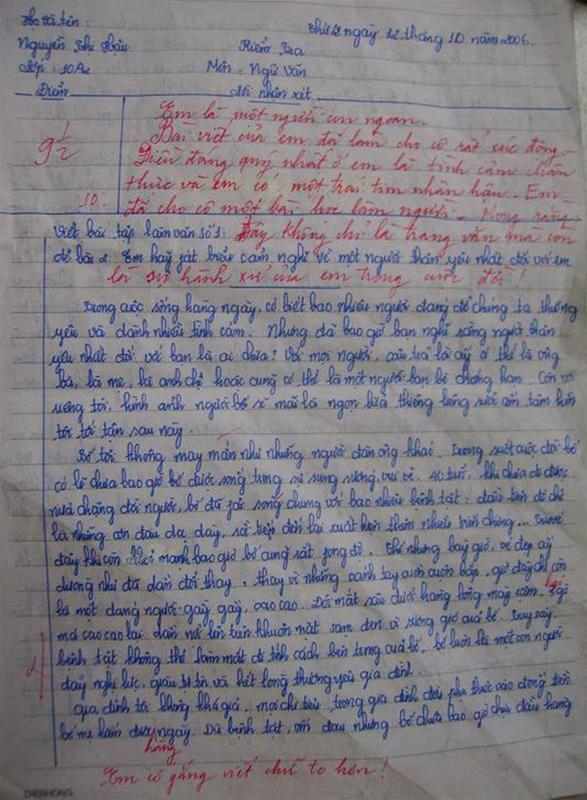 Họ và tên : Thứ 5 ngày 12 tháng 10 năm 2006.
Nguyễn Thị Hậu Kiểm tra
Lớp : 10A2 Môn : Ngữ Văn
Điểm Lời nhận xét
9 1/2
10.
Em là một người con ngoan.
Bài viết của em đã làm cho cô rất xúc động.
Điều đáng quý nhất ở em là tình cảm chân
thực và em có một trái tim nhân hậu. Em
đã cho cô một bài học làm người. Mong rằng
Viết bài tập làm văn số 1: đây không chỉ là trang văn mà còn
đề bài : Em hãy phát biểu cảm nghĩ về một người thân yêu nhất đối với em.
là sự hành xử của em trong cuộc đời!
Trong cuộc sống hàng ngày, có biết bao nhiêu người đáng để chúng ta thương
yêu và dành nhiều tình cảm. Nhưng đã bao giờ bạn nghĩ rằng người thân
yêu nhất đối với bạn là ai chưa? Với mọi người, câu trả lời ấy có thể là ông
bà, là mẹ, là anh chị hoặc cũng có thể là một người bạn bè chẳng hạn. Còn với
riêng tôi, hình ảnh người bố sẽ mãi là ngọn lửa thiêng liêng sưởi ấm tâm hồn
tôi tới tận sau này.
Bố tôi không may mắn như những người đàn ông khác. Trong suốt cuộc đời bố
có lẽ chưa bao giờ bố được sống trong sự sung sướng, vui vẻ. 40 tuổi, khi chưa đi được
nửa chặng đời người, bố đã phải sống chung với bao nhiêu bệnh tật : đầu tiên đó chỉ
là những cơn đau dạ dày, rồi tiếp đến lại xuất hiện thêm nhiều biến chứng... Trước
đây khi còn khoẻ mạnh bao giờ bố cũng rất phong độ. Thế nhưng bây giờ, vẻ đẹp ấy
dường như đã dần đổi thay. Thay vì những cánh tay cuồn cuộn bắp, giờ đây chỉ còn
là một dáng người gầy gầy, cao cao. Đôi mắt sâu dưới hàng lông mày rậm, hai gò
má cao cao lại dần nổi lên trên khuôn mặt sạm đen vì sương gió của bố. Tuy vậy,
bệnh tật không thể làm mất đi tính cách bên trong của bố, bố luôn là một con người
đầy nghị lực, giàu tự tin và hết lòng thương yêu gia đình.
Gia đình tôi không khá giả. mọi chi tiêu trong gia đình đều phụ thuộc vào đồng tiền
bố mẹ kiếm được hàng ngày. Dù bệnh tật, ốm đau nhưng bố chưa bao giờ chịu đầu hàng
Em cố gắng viết chữ to hơn!
DIENHONG